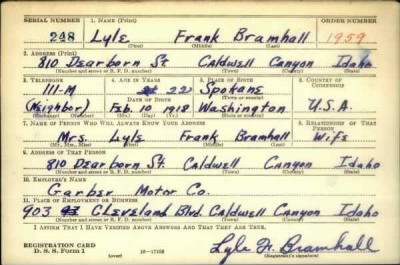 SERIAL NUMBER 1. NAME (Print) ORDER NUMBER
248 Lyle Frank Bramhall 1959
(First) (Middle) (Last)
2. ADDRESS (Print)
810 Dearborn St. Caldwell Canyon Idaho
(Number and street or R. F. D. number) (Town) (County) (State)
3. TELEPHONE 4. AGE IN YEARS 5. PLACE OF BIRTH 6. COUNTRY OF CITIZENSHIP
111-M 22 Spokane
(Town or county)
DATE OF BIRTH
(Neighbor) Feb. 10 1918 Washington U.S.A.
(Exchange) (Number) (Mo.) (Day) (Yr.) (State or country)
7. NAME OF PERSON WHO WILL ALWAYS KNOW YOUR ADDRESS 8. RELATIONSHIP OF THAT PERSON
Mrs. Lyle Frank Bramhall Wife
(Mr., Mrs., Miss) (First) (Middle) (Last)
9. ADDRESS OF THAT PERSON
810 Dearborn St. Caldwell Canyon Idaho
(Number and street or R. F. D. number) (Town) (County) (State)
10. EMPLOYER'S NAME
Garber Motor Co.
11. PLACE OF EMPLOYMENT OR BUSINESS
903 Cleveland Blvd. Caldwell Canyon Idaho
(Number and street or R. F. D. number) (Town) (County) (State)
I AFFIRM THAT I HAVE VERIFIED ABOVE ANSWERS AND THAT THEY ARE TRUE.
REGISTRATION CARD
D. S. S. Form 1 (over) 16-17105 Lyle F. Bramhall
(Registrant's signature)